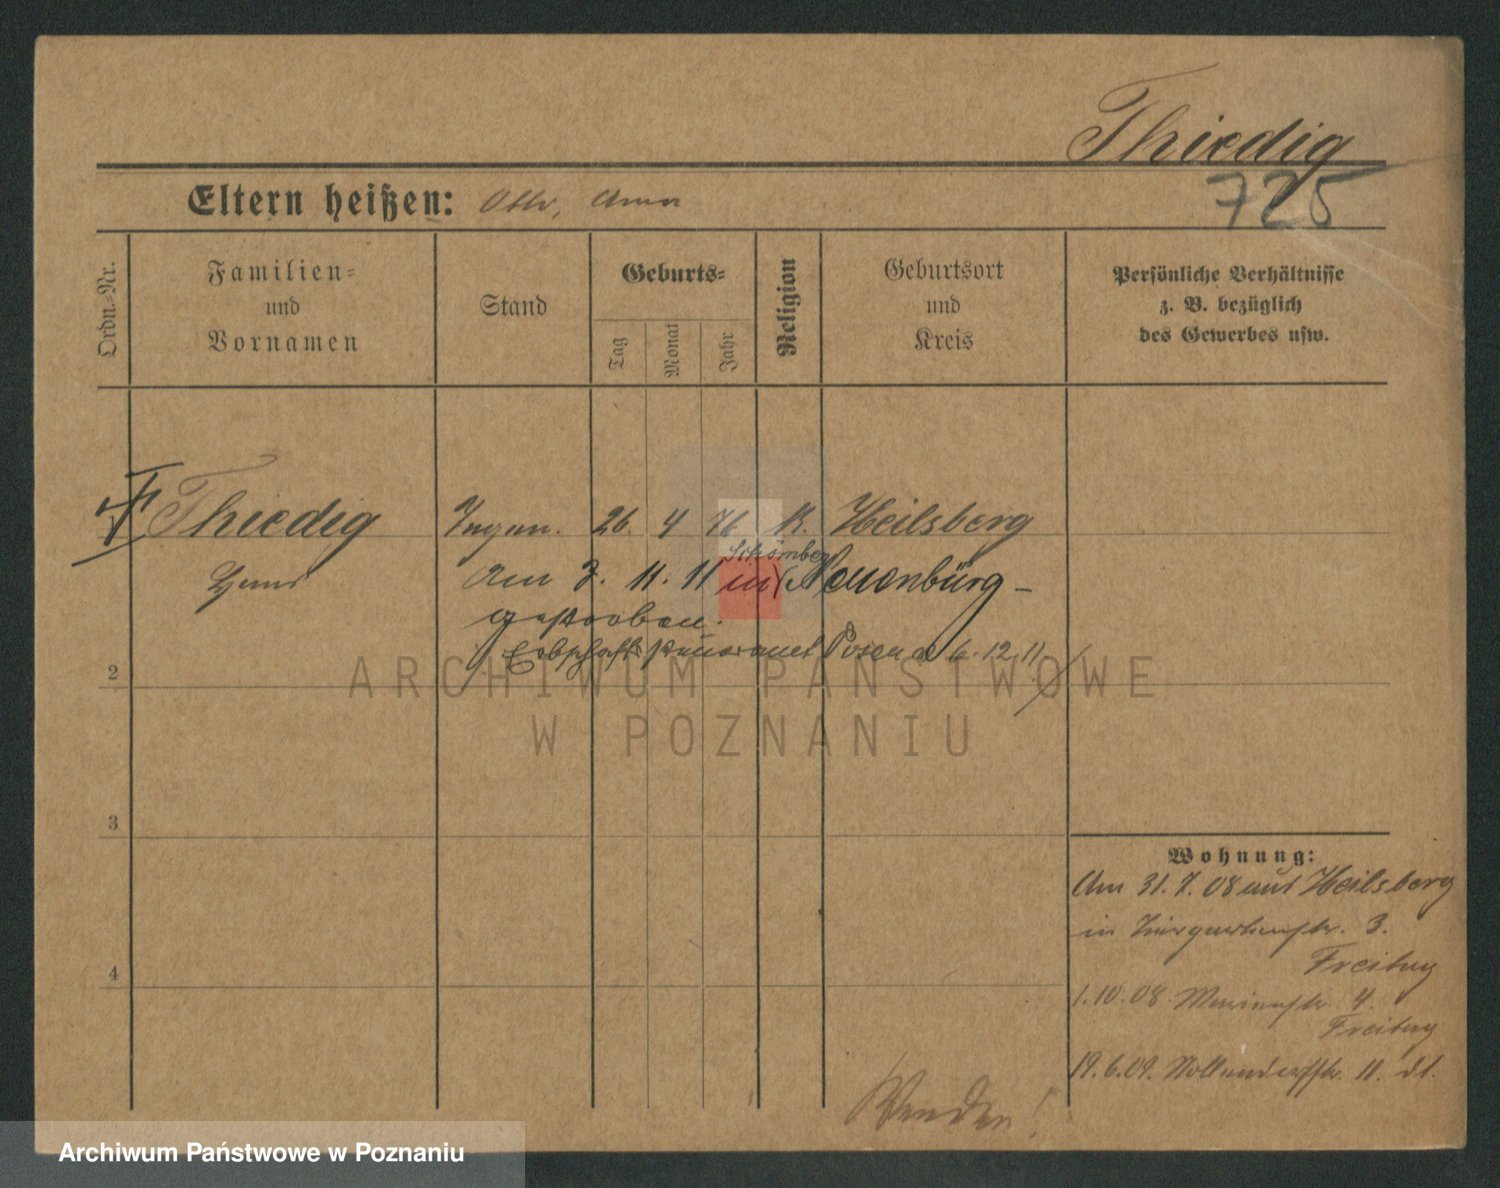 Thiedig
725
Eltern heißen: Otto, Anna
Ordn.-Nr.
Familien-
und
Vornamen
Stand
Geburts-
Tag
Monat
Jahr
Religion
Geburtsort
und
Kreis
Persönliche Verhältnisse
z. B. bezüglich
des Gewerbes usw.
1 Thiedig 26. 4 76 K. Heilsberg
Am 7. 11. 11 in Neuenbürg -
Schömberg
gestorben.
Erbschaftssteueramt Posen a 6. 12. 11.
2
3
4
Wohnung:
Am 31. 7. 08 aus Heilsberg
in 3.
Freitag
1. 10. 08 4.
Freitag
19. 6. 09. Nollendorfstr. 11. d1.
Wenden!
ARCHIWUM PAŃSTWOWE
W POZNANIU
Archiwum Państwowe w Poznaniu